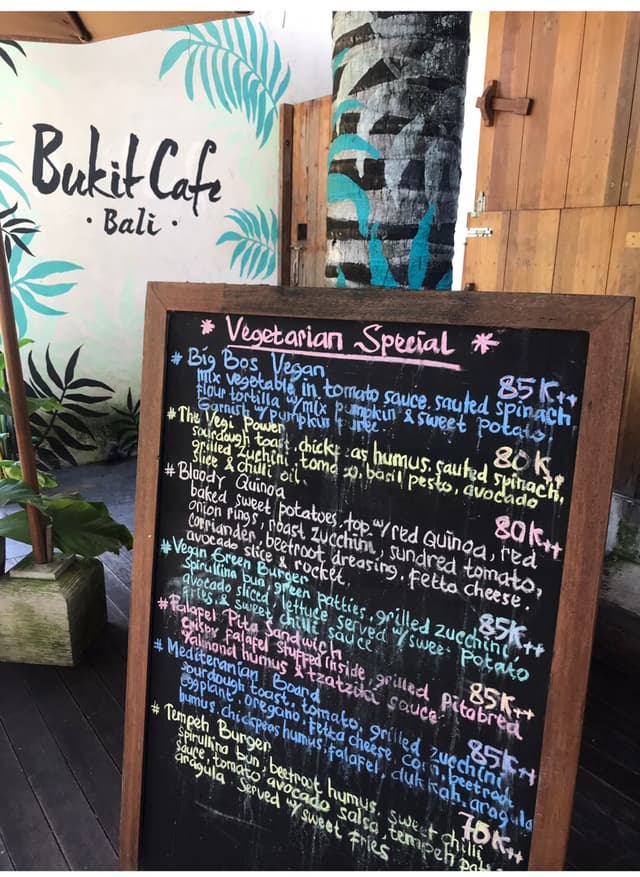 Bukit Cafe
· Bali ·
* Vegetarian Special *
# Big Bos Vegan 85K++
mix vegetable in tomato sauce, sauted spinach
flour tortilla w/mix pumpkin & sweet potato
garnish w/ pumpkin puree.
# The Vegi Power 80K++
sourdough toast, chickpeas humus, sauted spinach,
grilled zuchini, tomato, basil pesto, avocado
slice & chilli oil.
# Bloody Quinoa 80K++
baked sweet potatoes, top w/red Quinoa, red
onion rings, roast zucchini, sundred tomato,
corriander, beetroot dreasing, fetta cheese.
avocado slice & rocket.
# Vegan Green Burger 85K++
Spirullina bun, green patties, grilled zucchini,
avocado sliced, lettuce served w/sweet potato
fries & sweet chilli sauce
# Falafel Pita Sandwich 85K++
falafel stuffed inside, grilled pitabred
w/almond humus & tzatziki sauce
# Mediteranian Board 85K++
sourdough toast, tomato, grilled zucchini,
eggplant, oregano, fetta cheese, corn, beetroot
humus, chickpeas humus, falafel, dukkah, aragula
# Tempeh Burger 75K++
spirulina bun, beetroot humus, sweet chilli
sauce, tomato avocado salsa, tempeh
aragula served w/sweet fries